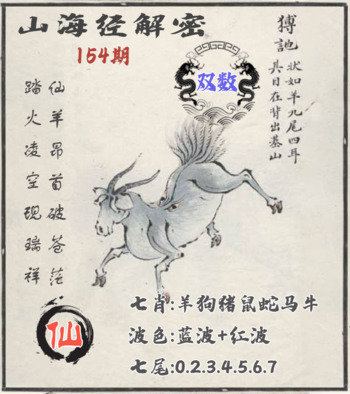 山海经解密
154期
双数
猼訑
状如羊九尾四耳
其目在背出基山
仙羊昂首破苍茫
踏火凌空现瑞祥
仙
七肖:羊狗猪鼠蛇马牛
波色:蓝波+红波
七尾:0.2.3.4.5.6.7